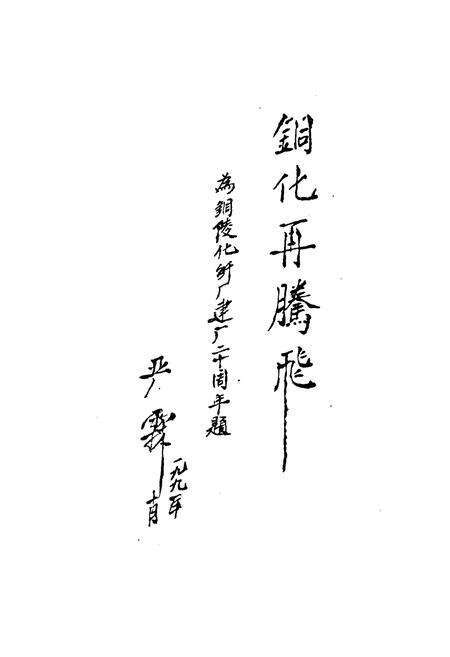 銅化再騰飛
為銅陵化纤厂建厂二十周年題
严霖
一九九年
十月